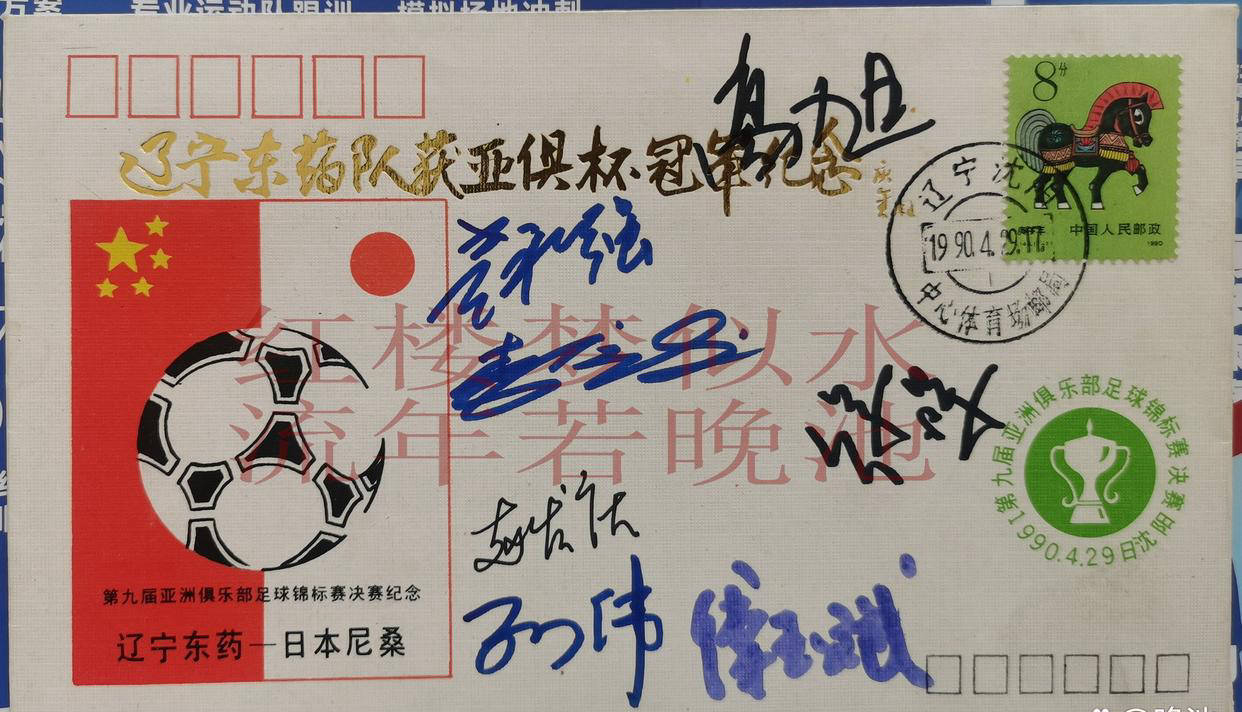 方案
专业运动队跟训
模拟场地冲刺
高力丑
辽宁东药队获亚俱杯冠军纪念
8分
中国人民邮政
1990
辽宁沈阳
1990.4.29.17
中心体育场邮局
红楼梦似水
流年若晚池
第九届亚洲俱乐部足球锦标赛决赛
1990.4.29日沈阳
第九届亚洲俱乐部足球锦标赛决赛纪念
辽宁东药—日本尼桑
孙伟
傅玉斌
晚池